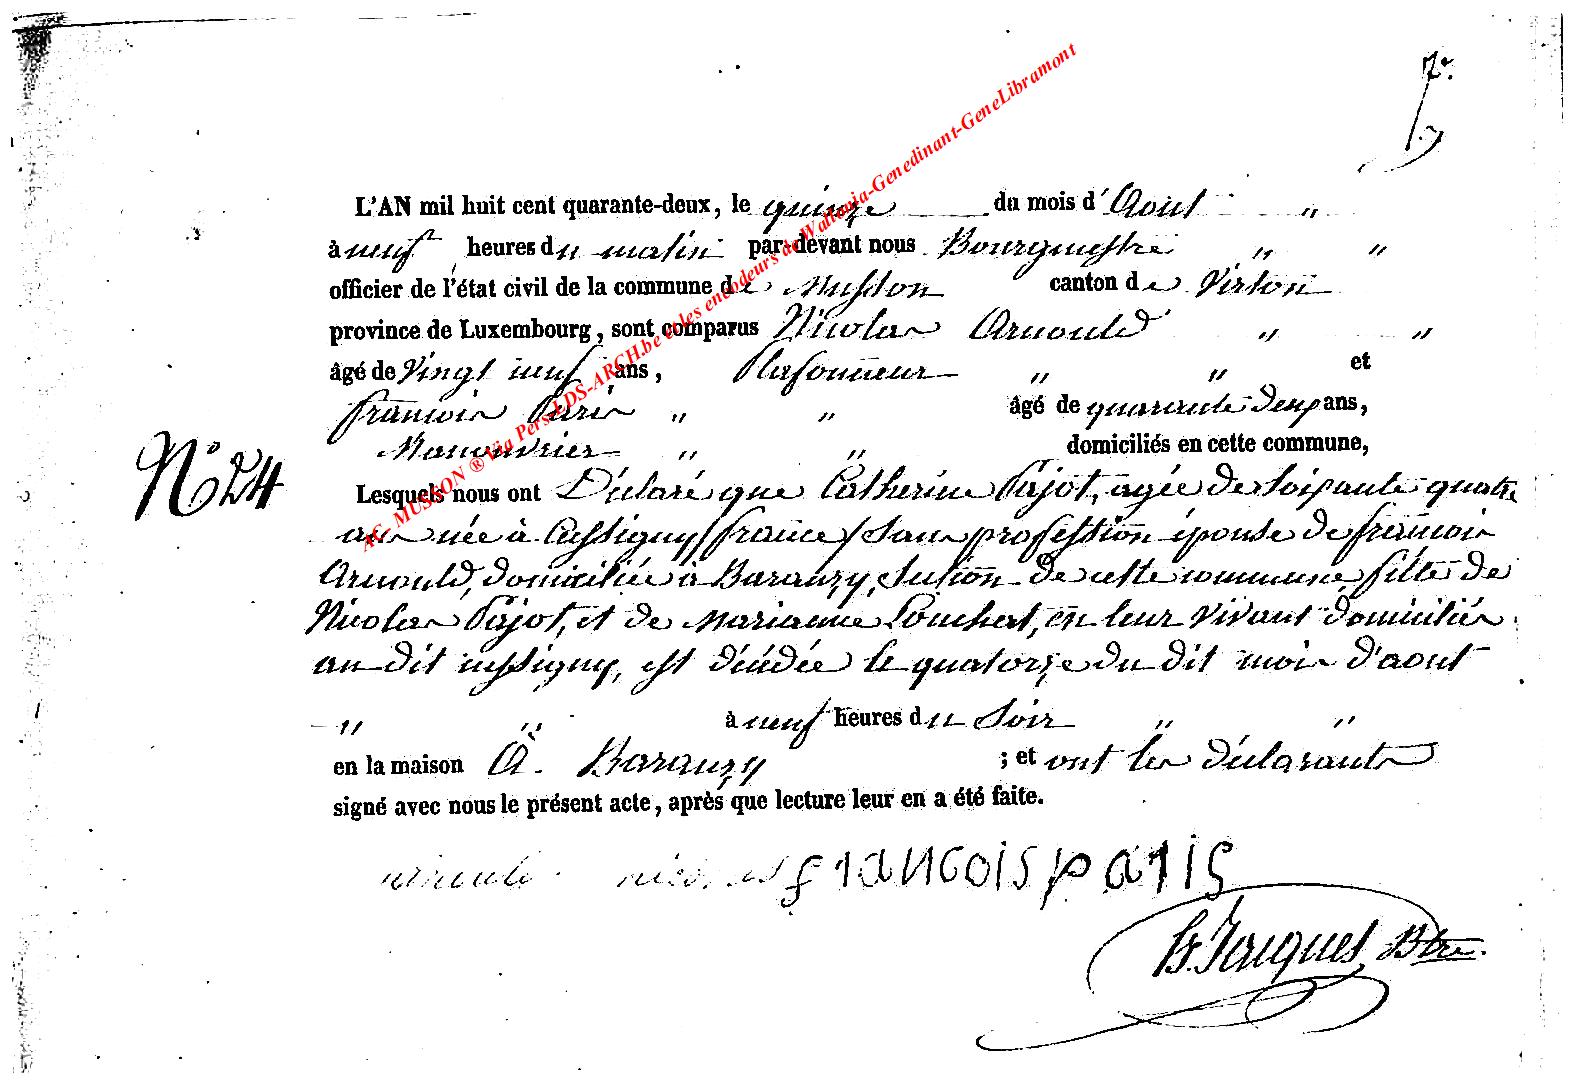 7e.
L'AN mil huit cent quarante-deux, le quinze du mois d'Aout "
à neuf heures du matin par devant nous Bourgmestre " "
officier de l'état civil de la commune de Musson canton de Virton
province de Luxembourg, sont comparus Nicolas Arnould " "
âgé de Vingt neuf ans, Plafonneur " " et
françois Paris " " âgé de quarante deux ans,
Manouvrier " " domiciliés en cette commune,
N° 24
Lesquels nous ont Déclaré que Catherine Pajot, agée de Soixante quatre
ans née à Cussigny /france/ Sans profession épouse de françois
Arnould, domiciliée à Baranzy, Section de cette commune, fille de
Nicolas Pajot, et de Marianne Louchert, en leur Vivant domiciliés
au dit cussigny, est décédée le quatorze du dit mois d'aout
" " à neuf heures du Soir " "
en la maison à Baranzy ; et ont les déclarants
signé avec nous le présent acte, après que lecture leur en a été faite.
arnould nicolas francois paris
Jacques Btre.
AC- MUSSON ® Via Pers-LDS-ARCH.be et les encodeurs de Wallonia-Genedinant-GeneLibramont